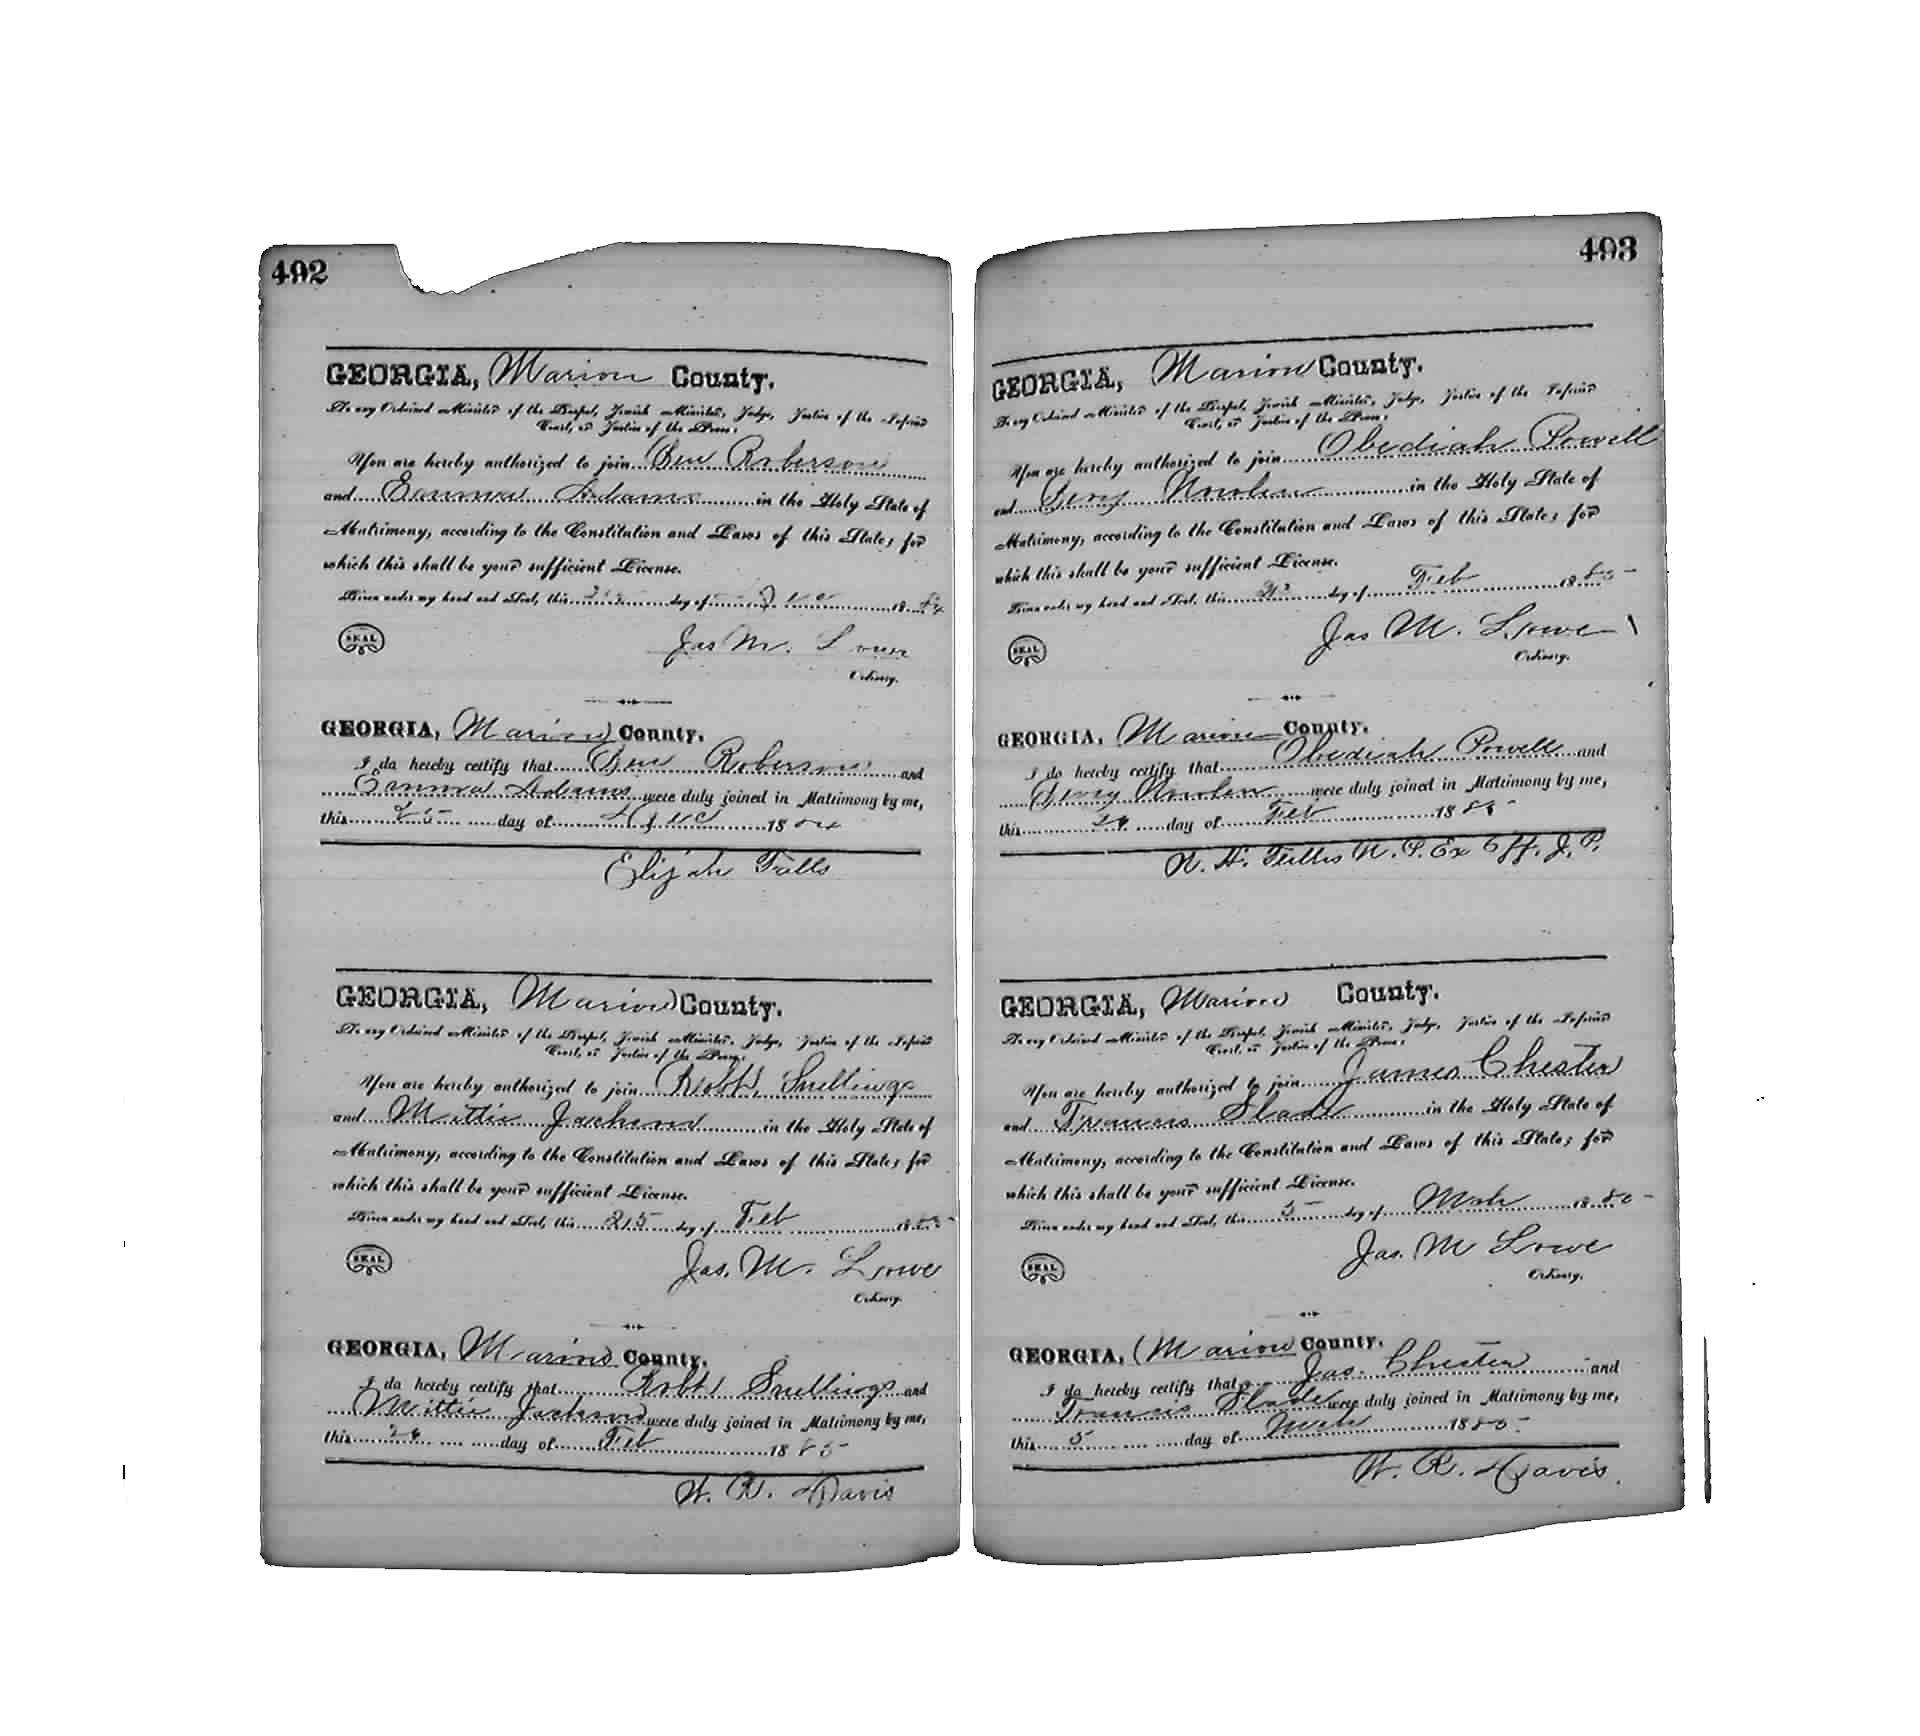 492
GEORGIA, Marion County.
To any Ordained Minister of the Gospel, Jewish Minister, Judge, Justice of the Inferior
Court, or Justice of the Peace:
You are hereby authorized to join Ben Roberson
and Emma Adams in the Holy State of
Matrimony, according to the Constitution and Laws of this State; for
which this shall be your sufficient License.
Given under my hand and Seal, this day of Dec 1884
SEAL
Jas M. Lowe
Ordinary.
GEORGIA, Marion County.
I do hereby certify that Ben Roberson and
Emma Adams were duly joined in Matrimony by me,
this 25 day of Dec 1884
Elijah Falls
GEORGIA, Marion County.
To any Ordained Minister of the Gospel, Jewish Minister, Judge, Justice of the Inferior
Court, or Justice of the Peace:
You are hereby authorized to join Robt Snellings
and Mittie Jackson in the Holy State of
Matrimony, according to the Constitution and Laws of this State; for
which this shall be your sufficient License.
Given under my hand and Seal, this 25 day of Feb 1885
SEAL
Jas. M. Lowe
Ordinary.
GEORGIA, Marion County.
I do hereby certify that Robt Snellings and
Mittie Jackson were duly joined in Matrimony by me,
this 26 day of Feb 1885
W. R. Davis
493
GEORGIA, Marion County.
To any Ordained Minister of the Gospel, Jewish Minister, Judge, Justice of the Inferior
Court, or Justice of the Peace:
You are hereby authorized to join Obediah Powell
and Nowlen in the Holy State of
Matrimony, according to the Constitution and Laws of this State; for
which this shall be your sufficient License.
Given under my hand and Seal, this day of Feb 1885
SEAL
Jas M. Lowe
Ordinary.
GEORGIA, Marion County.
I do hereby certify that Obediah Powell and
Nowlen were duly joined in Matrimony by me,
this 24 day of Feb 1885
N. P. Ex Off. J. P.
GEORGIA, Marion County.
To any Ordained Minister of the Gospel, Jewish Minister, Judge, Justice of the Inferior
Court, or Justice of the Peace:
You are hereby authorized to join James Chester
and Francis Slade in the Holy State of
Matrimony, according to the Constitution and Laws of this State; for
which this shall be your sufficient License.
Given under my hand and Seal, this 5 day of Mch 1885
SEAL
Jas. M Lowe
Ordinary.
GEORGIA, Marion County.
I do hereby certify that Jas. Chester and
Francis Slade were duly joined in Matrimony by me,
this 5 day of Mch 1885
W. R. Davis.